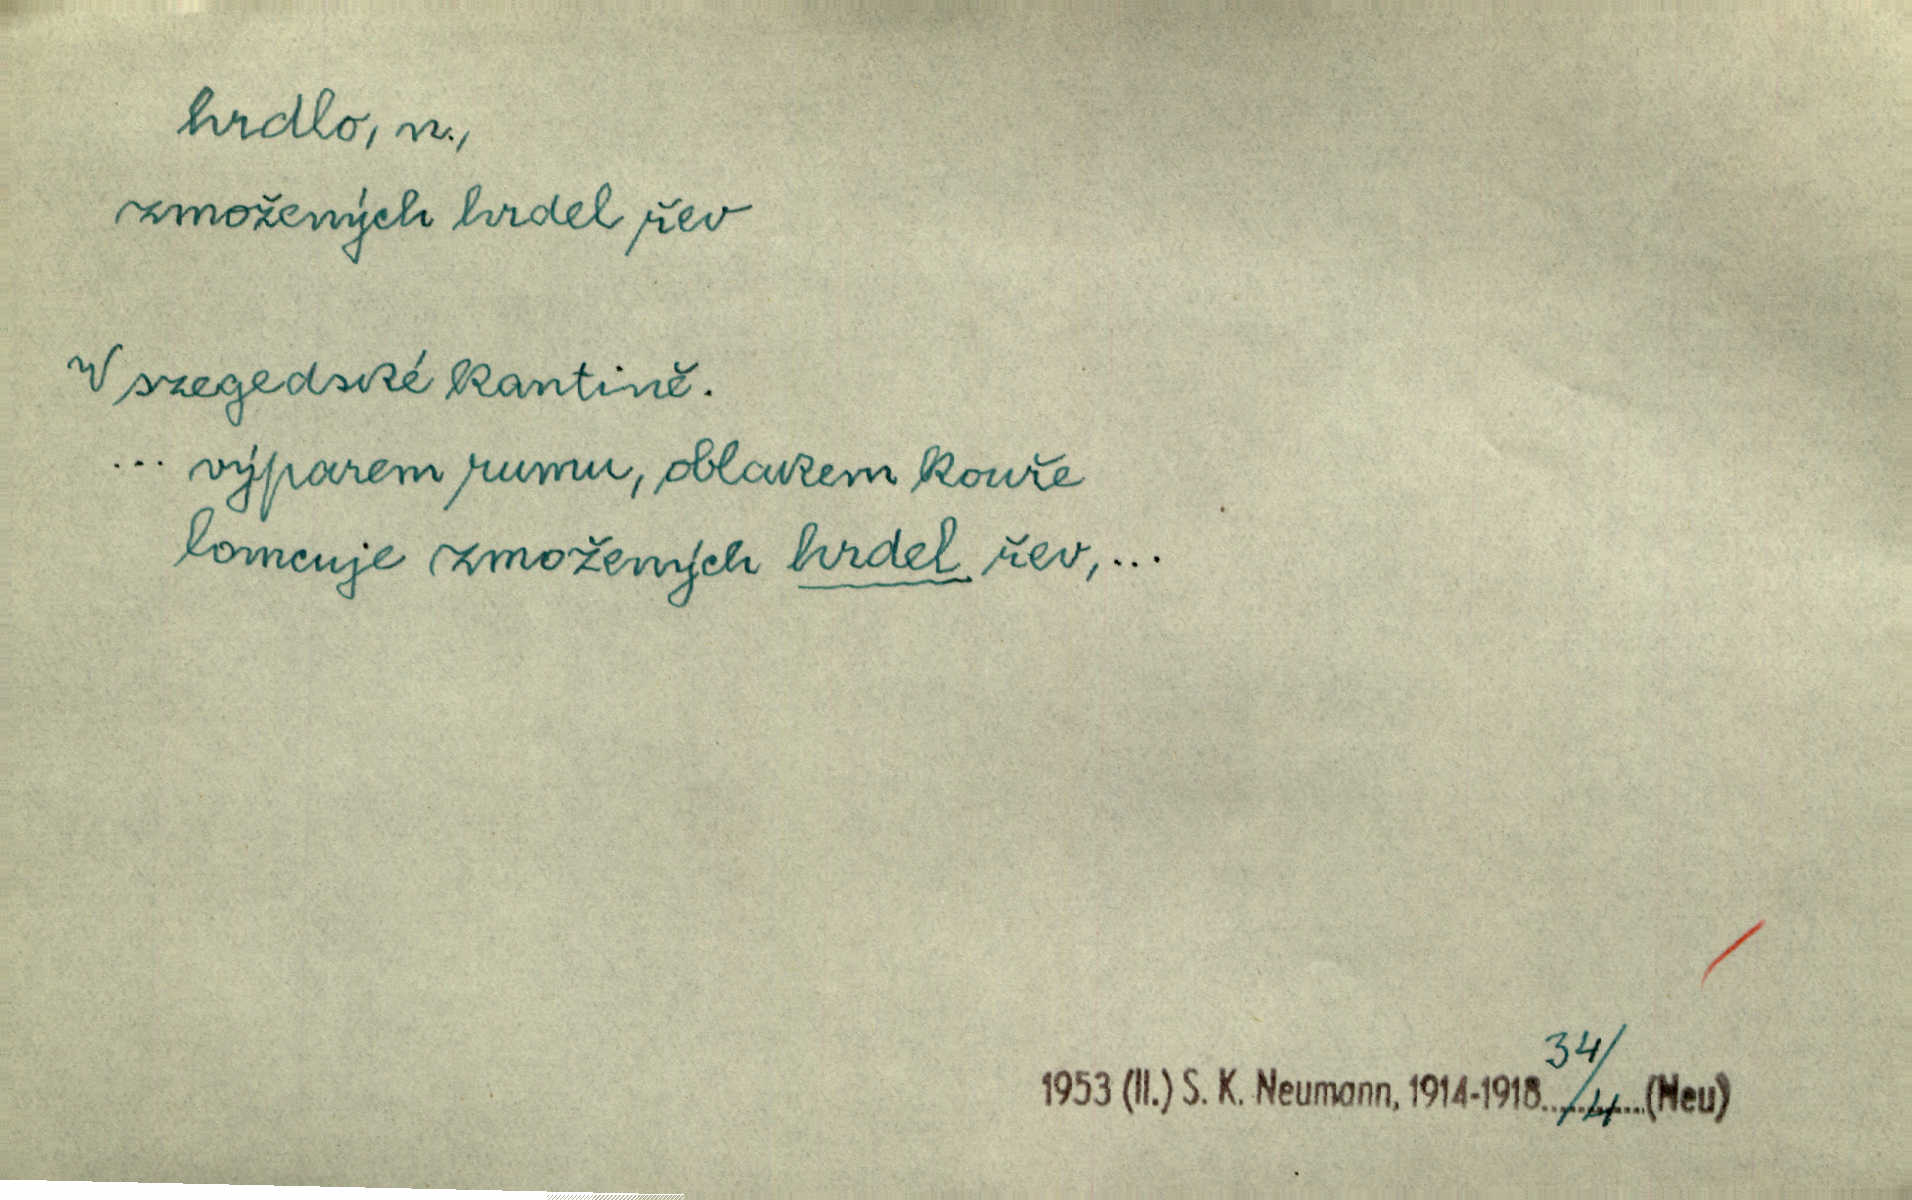 hrdlo, n.,
zmožených hrdel řev
V szegedské kantině.
... výparem rumu, oblakem kouře
lomcuje zmožených hrdel řev, ...
1953 (II.) S. K. Neumann, 1914-1918 34/4 (Neu)